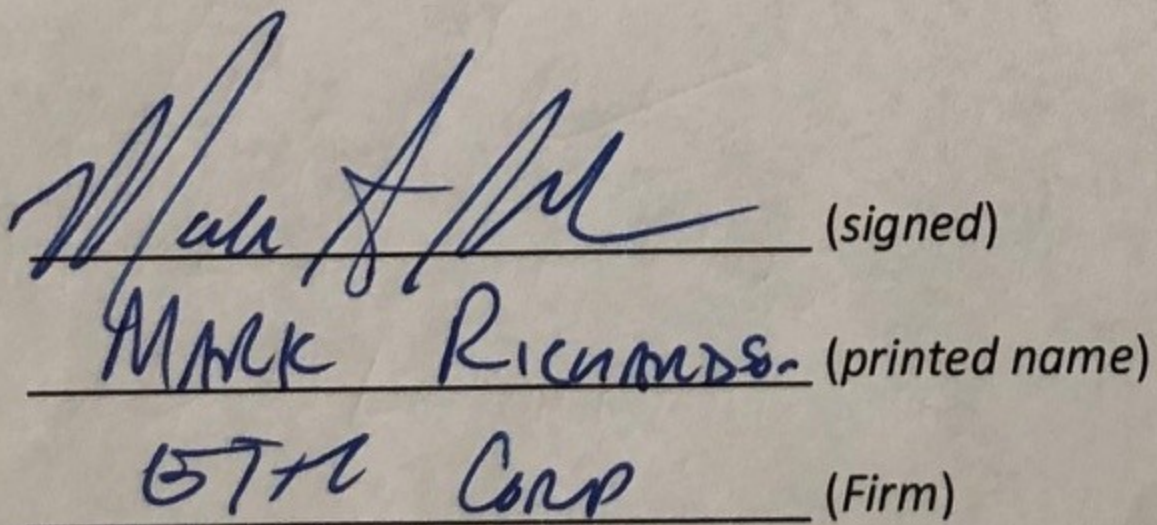 Mark A (signed)
MARK RICHARDSON (printed name)
Corp (Firm)